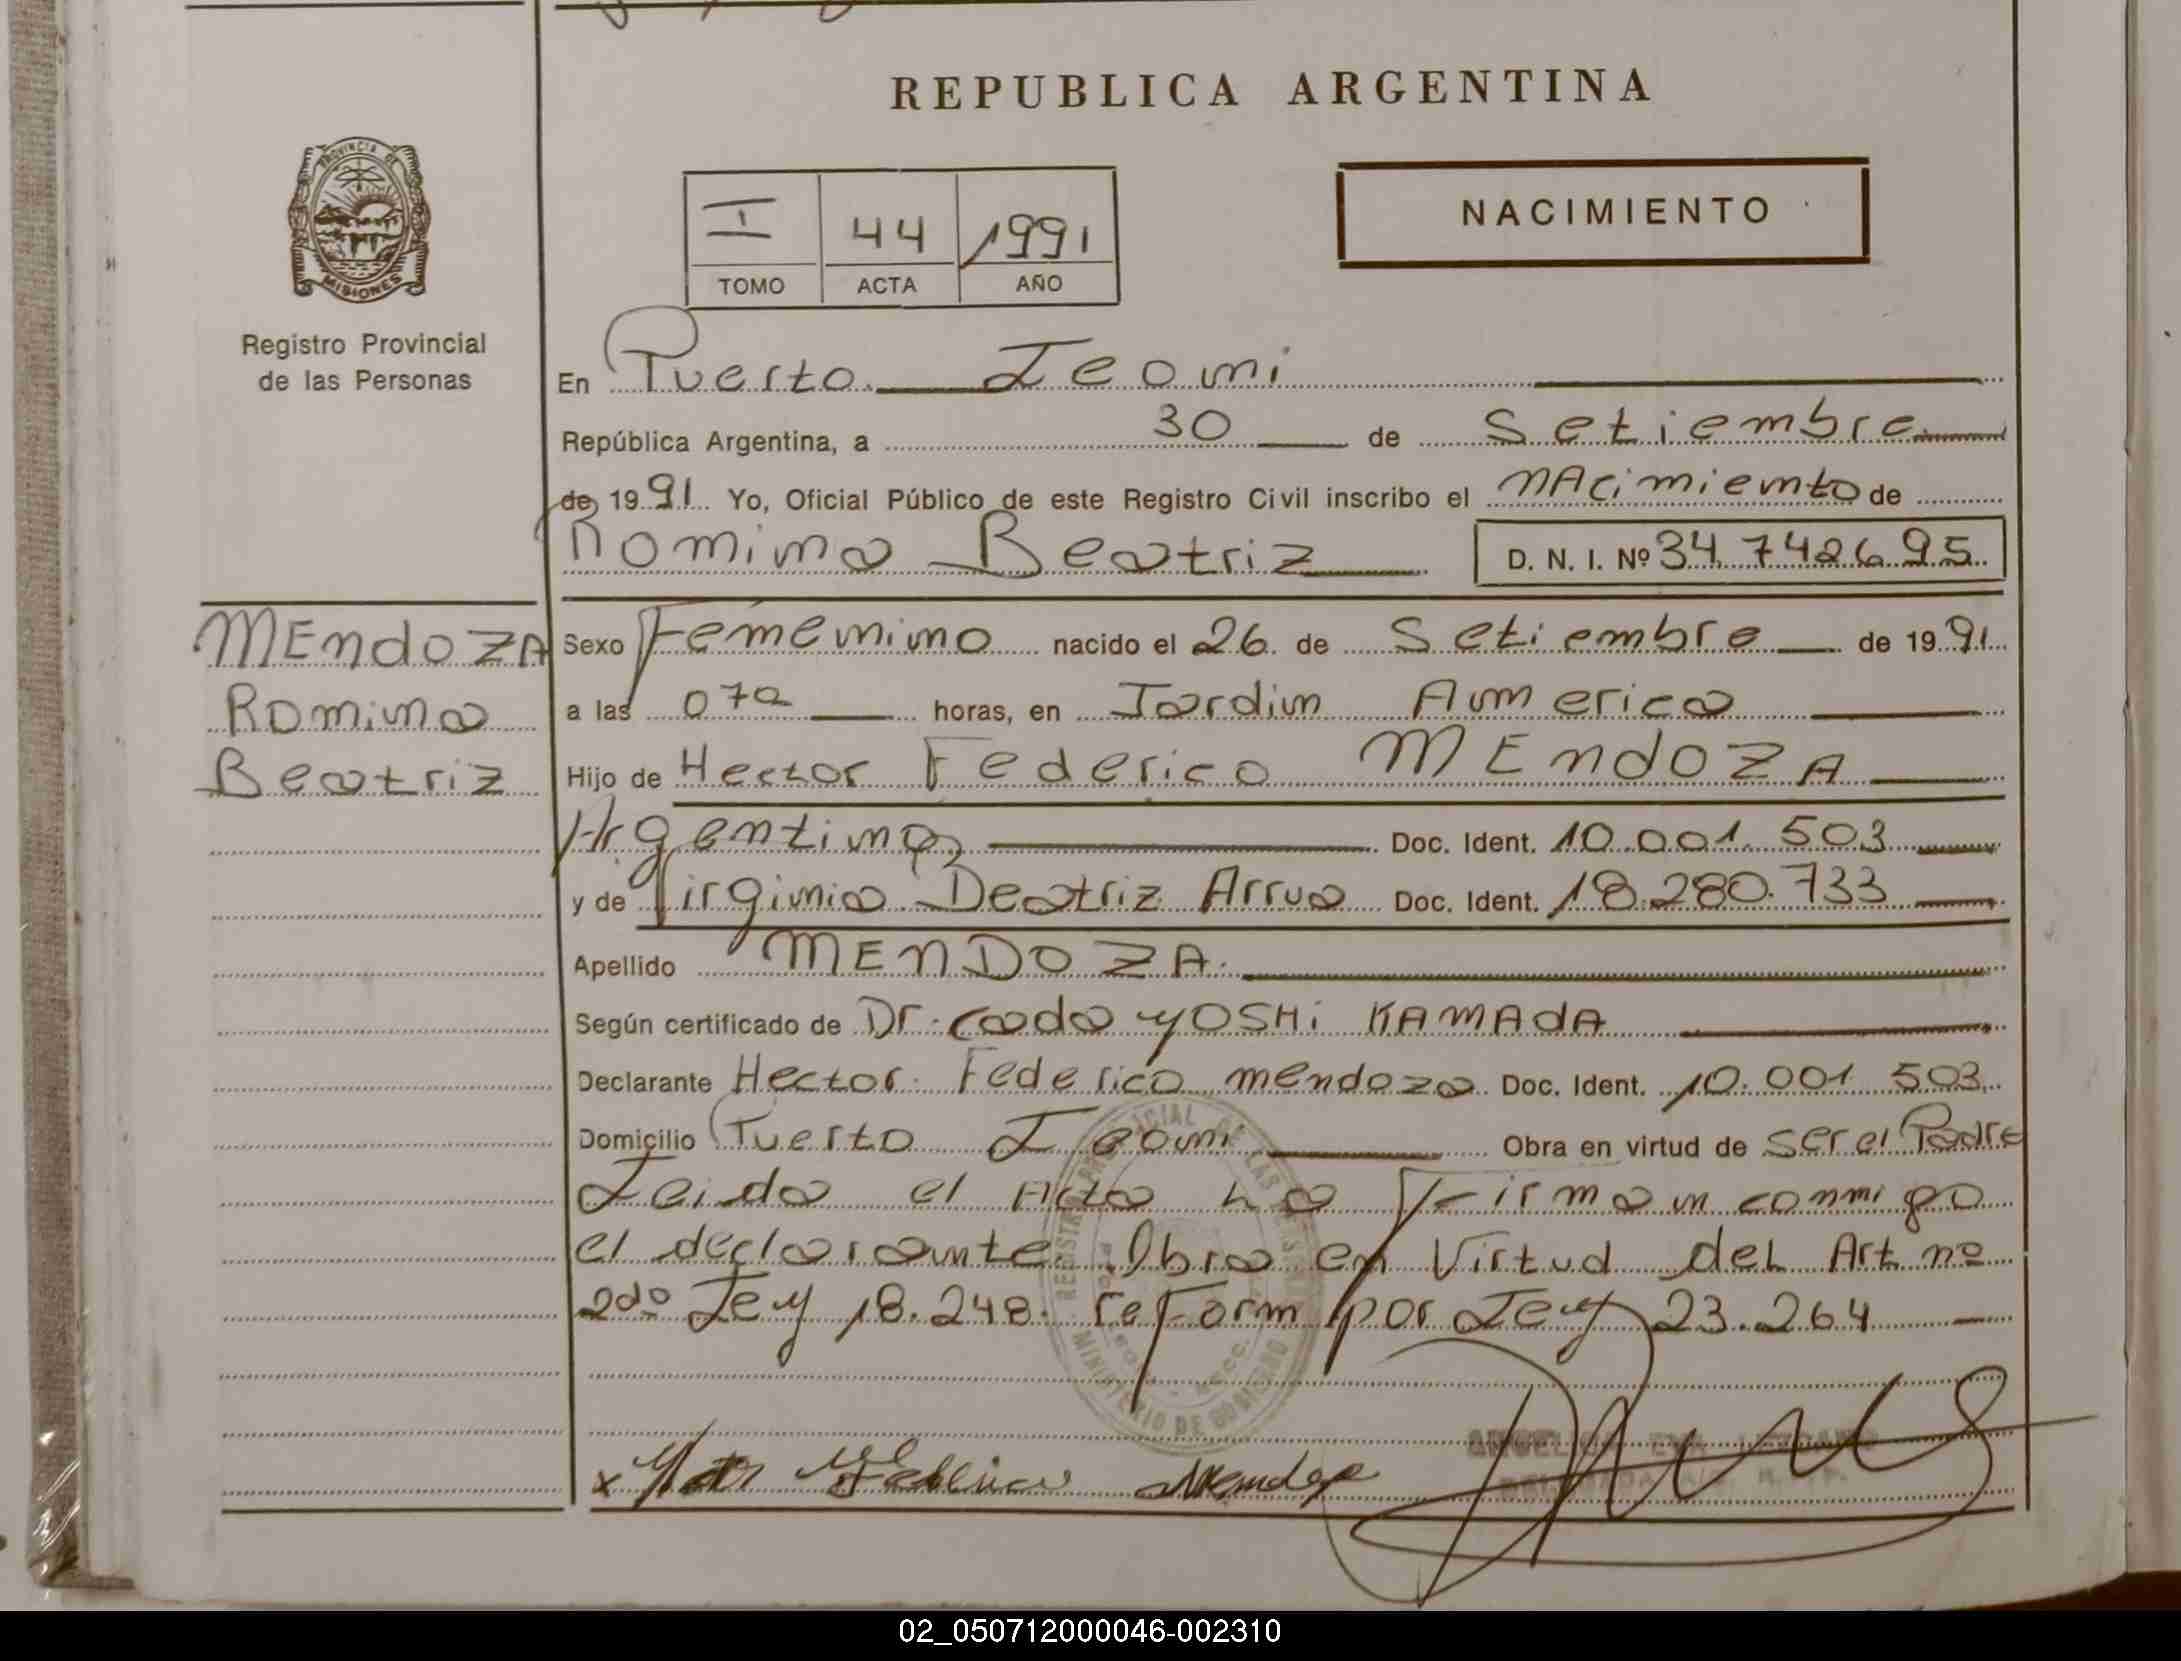 REPUBLICA ARGENTINA
PROVINCIA DE
MISIONES
Registro Provincial
de las Personas
I 44 1991
TOMO ACTA AÑO
NACIMIENTO
En Puerto Leoni
República Argentina, a 30 de Setiembre
de 1991 Yo, Oficial Público de este Registro Civil inscribo el nAcimiento de
Romina Beatriz D. N. I. Nº 34.742695
MEndoZA
Romina
Beatriz
Sexo Femenino nacido el 26 de Setiembre de 1991
a las 07a horas, en Jardin America
Hijo de Hector Federico MEndoZA
Argentino, Doc. Ident. 10.001.503
y de Virginia Beatriz Arrua Doc. Ident. 18.280.733
Apellido MENDOZA.
Según certificado de Dr. YOSHi KAMADA
Declarante Hector Federico mendoza Doc. Ident. 10.001 503
Domicilio Puerto Leoni Obra en virtud de Ser el Padre
Leida el Acta la Firman conmigo
el declarante. Obra en Virtud del Art nº
2do Ley 18.248. reform por Ley 23.264
REGISTRO PROVINCIAL DE LAS PERSONAS
MINISTERIO DE GOBIERNO
x Mendoza
02_050712000046-002310